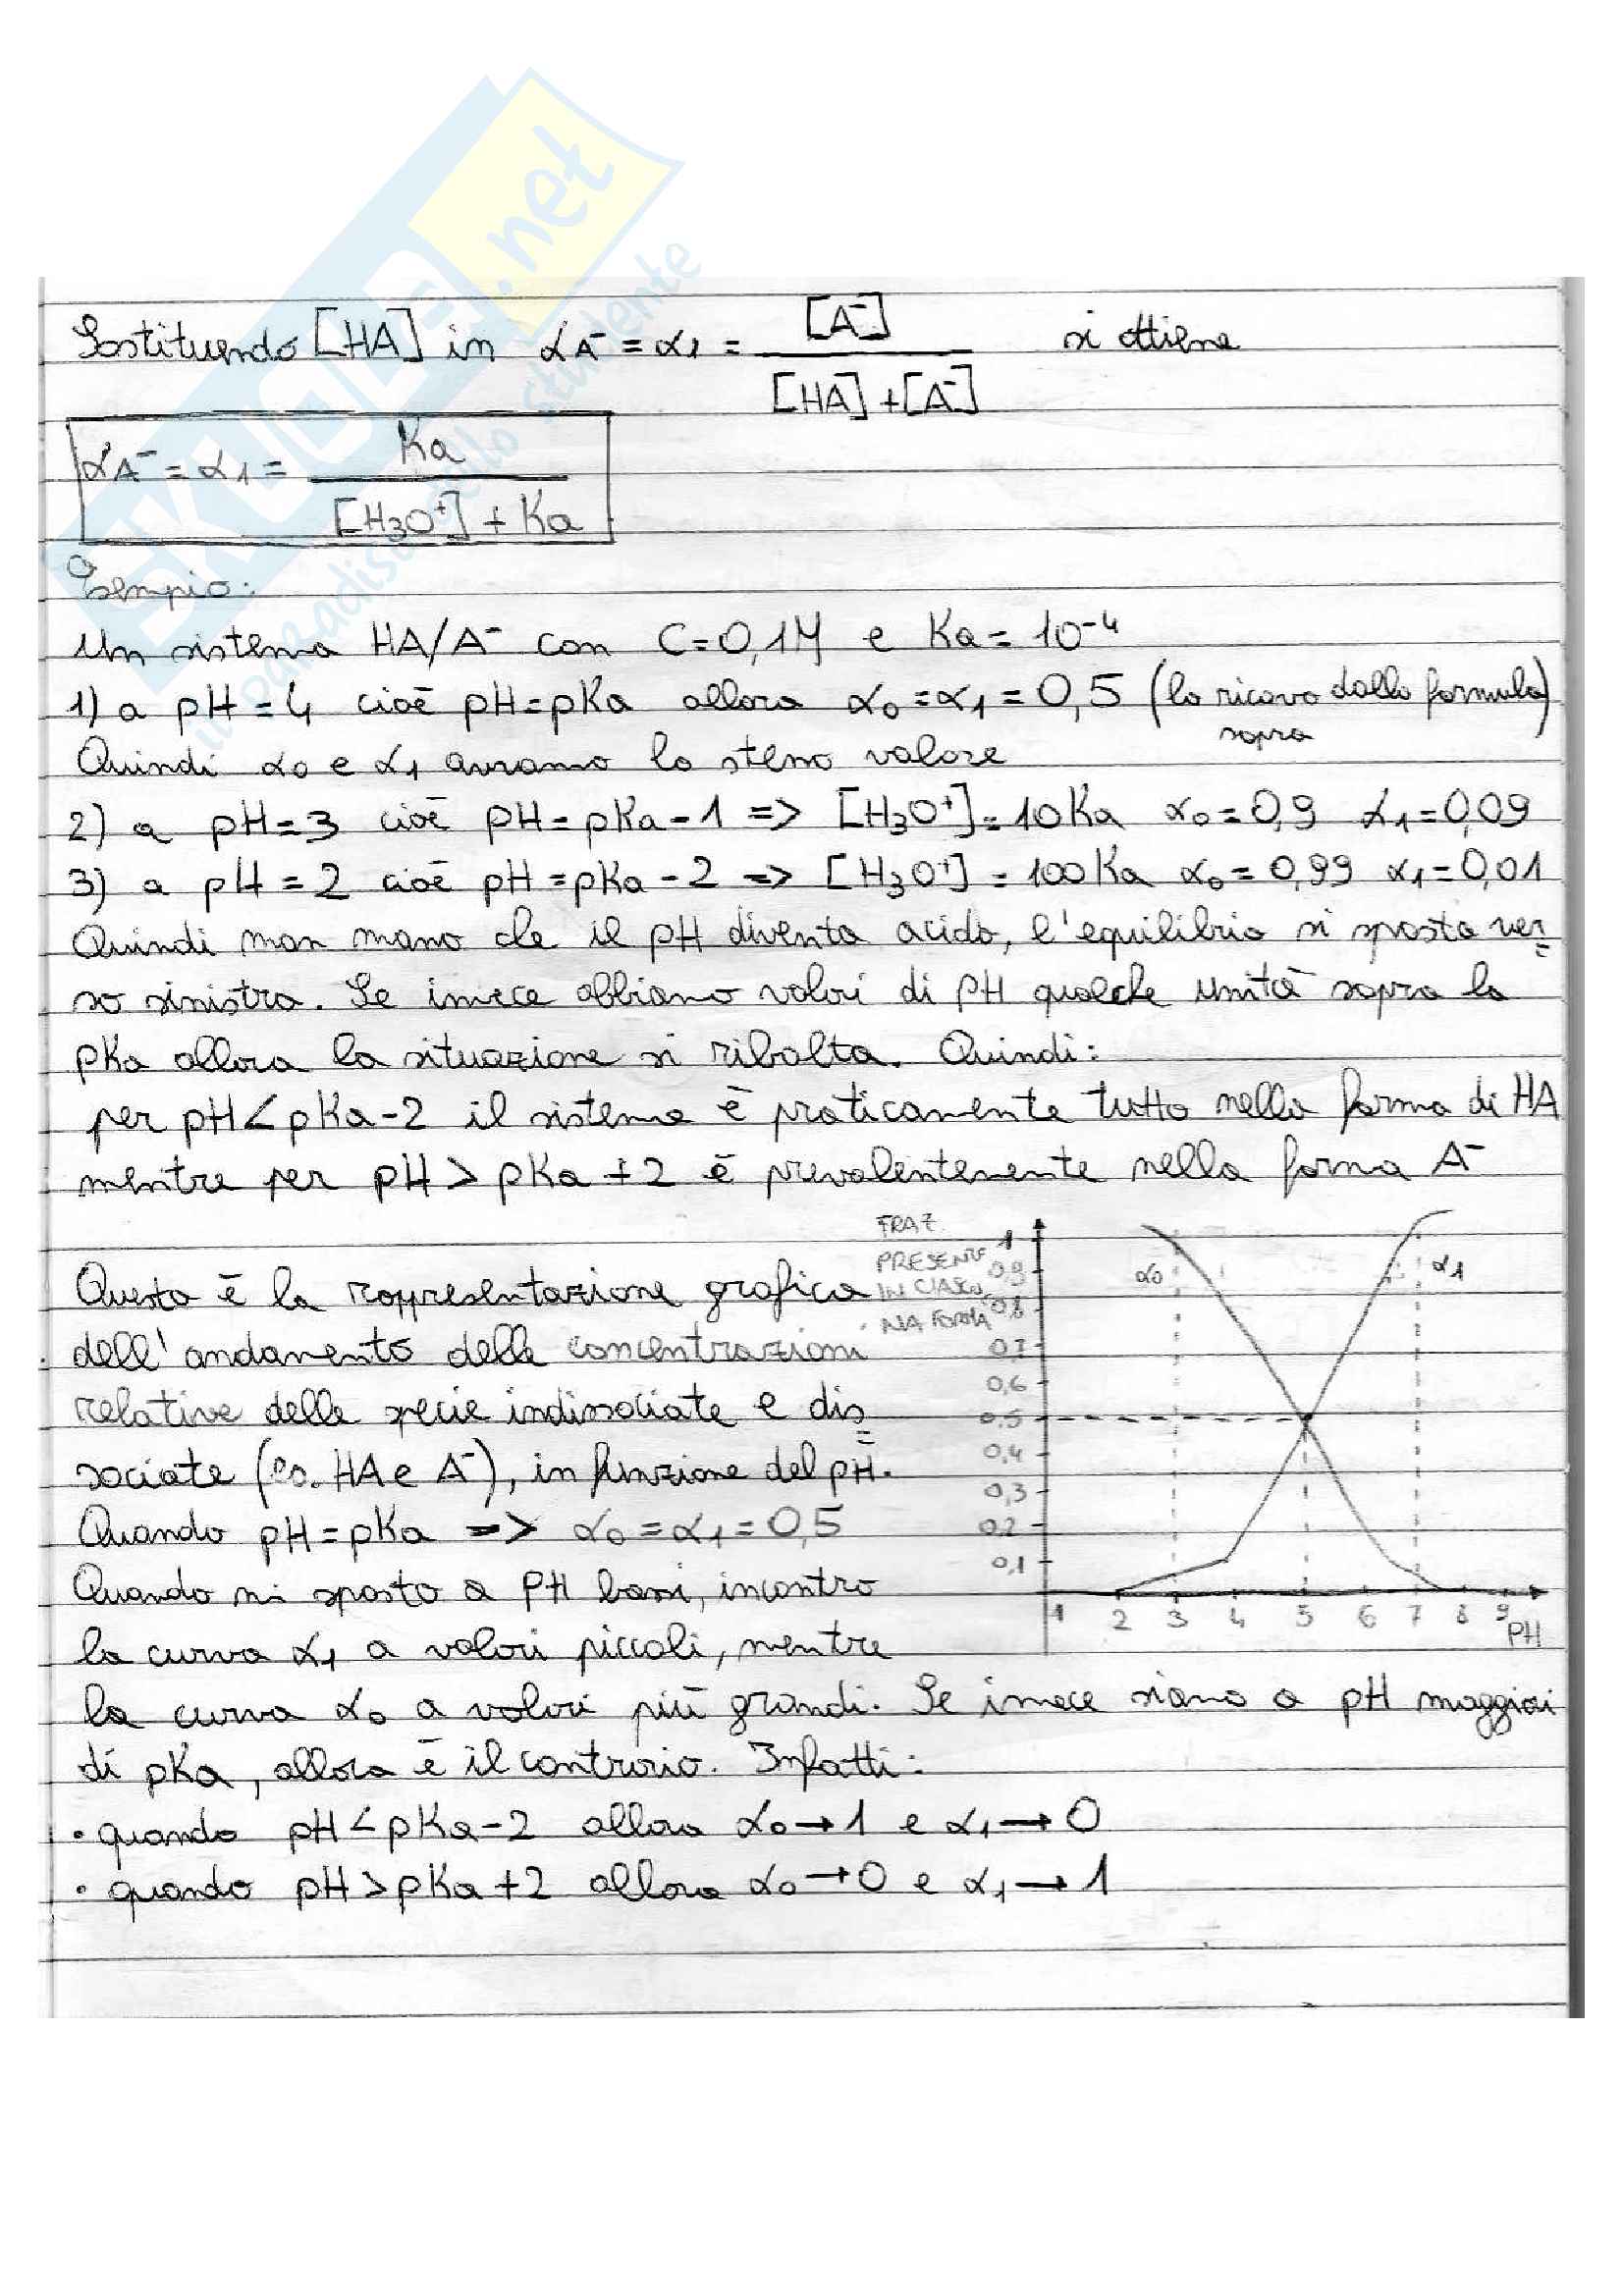 SKUOLA.net
il paradiso dello studente
Sostituendo [HA] in αA⁻ = α1 = [A⁻] / [HA] + [A⁻] si ottiene
αA⁻ = α1 = Ka / [H3O⁺] + Ka
Esempio:
Un sistema HA/A⁻ con C=0,1M e Ka = 10⁻⁴
1) a pH = 4 cioè pH=pKa allora α0 = α1 = 0,5 (lo ricavo dalla formula
sopra)
Quindi α0 e α1 avranno lo stesso valore
2) a pH=3 cioè pH=pKa-1 => [H3O⁺]=10Ka α0=0,9 α1=0,09
3) a pH=2 cioè pH=pKa-2 => [H3O⁺]=100Ka α0=0,99 α1=0,01
Quindi man mano che il pH diventa acido, l'equilibrio si sposta ver=
so sinistra. Se invece abbiamo valori di pH qualche unità sopra la
pKa allora la situazione si ribalta. Quindi:
per pH<pKa-2 il sistema è praticamente tutto nella forma di HA
mentre per pH>pKa+2 è prevalentemente nella forma A⁻
Questa è la rappresentazione grafica
dell'andamento delle concentrazioni
relative delle specie indissociate e dis=
sociate (es. HA e A⁻), in funzione del pH.
Quando pH=pKa => α0=α1=0,5
Quando mi sposto a pH bassi, incontro
la curva α1 a valori piccoli, mentre
FRAZ.
PRESENTE
IN CIASCU
NA FORMA
1
0,9
0,8
0,7
0,6
0,5
0,4
0,3
0,2
0,1
α0
α1
1 2 3 4 5 6 7 8 9
pH
la curva α0 a valori più grandi. Se invece siamo a pH maggiori
di pKa, allora è il contrario. Infatti:
• quando pH<pKa-2 allora α0→1 e α1→0
• quando pH>pKa+2 allora α0→0 e α1→1